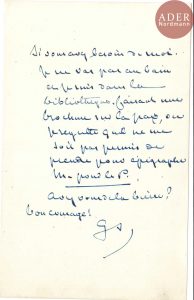 ADER
Nordmann
Si vous avez besoin de moi.
Je ne vais pas au bain
je suis dans la
bibliothèque, faisant une
brochure sur la paix, on
que ne me
soit pas permis de
prendre pour épigraphe
M
Avez vous de la bière?
bon courage!
GS